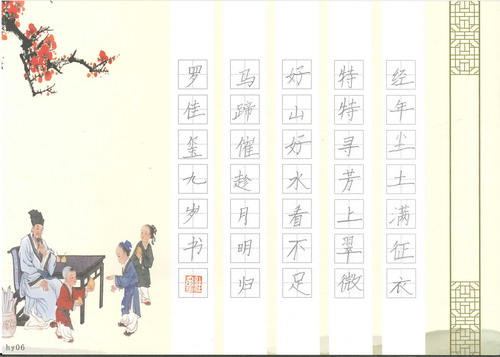 经年尘土满征衣
特特寻芳上翠微
好山好水看不足
马蹄催趁月明归
罗佳玺九岁书
hy06